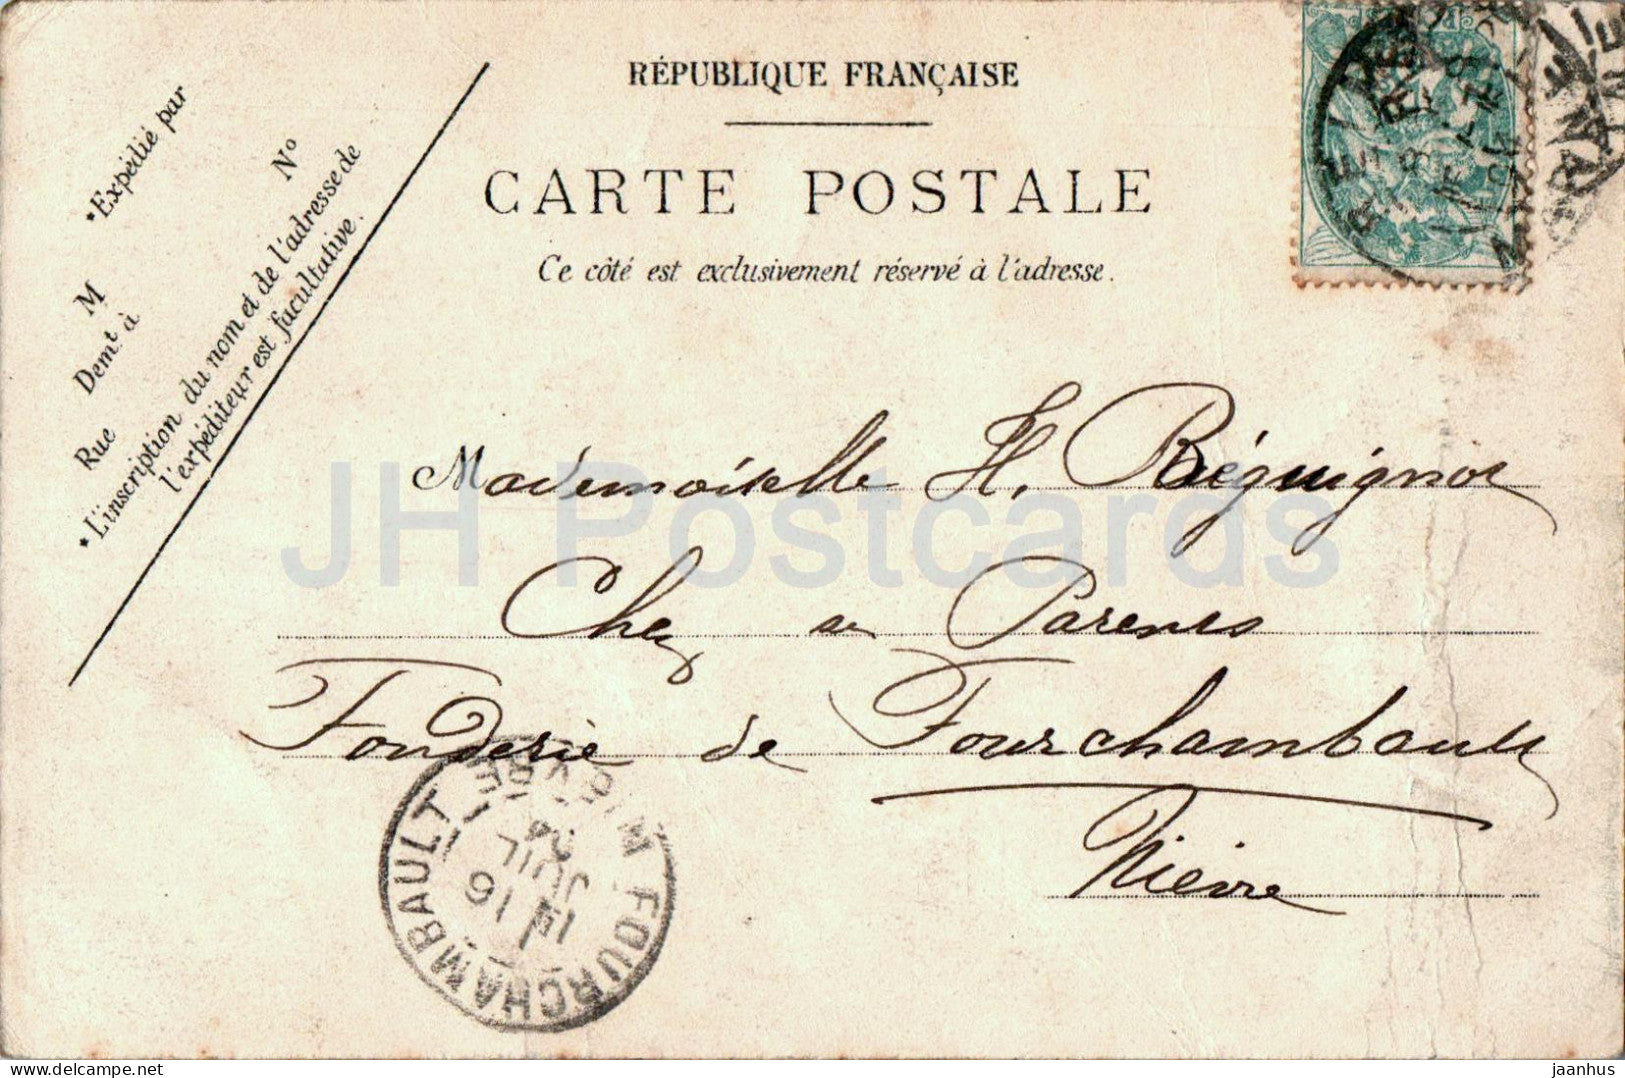 RÉPUBLIQUE FRANÇAISE
CARTE POSTALE
Ce côté est exclusivement réservé à l'adresse.
*Expédié par
M
Nº
Demt à
Rue
*L'inscription du nom et de l'adresse de
l'expéditeur est facultative.
Mademoiselle H. Béguignot
Chez se Parents
Fonderie de Fourchambault
Nièvre
JH Postcards
FOURCHAMBAULT NIÈVRE
1E
16
JUIL
04
jaanhus
delcampe.net